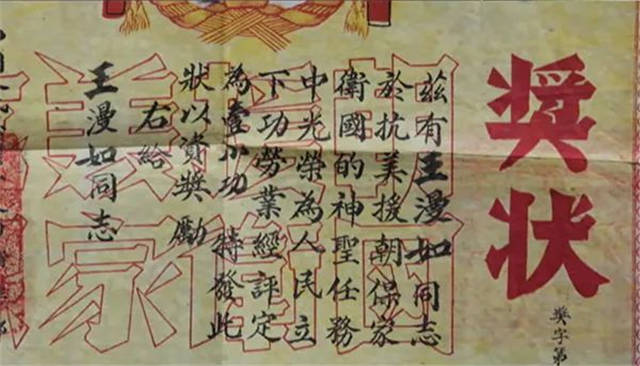 奖状
奖字第
兹有王漫如同志
於抗美援朝保家
衛國的神聖任務
中光榮為人民立
下功勞業經評定
為壹小功特發此
狀以資奬勵
右給
王漫如同志
美援朝
家衛國